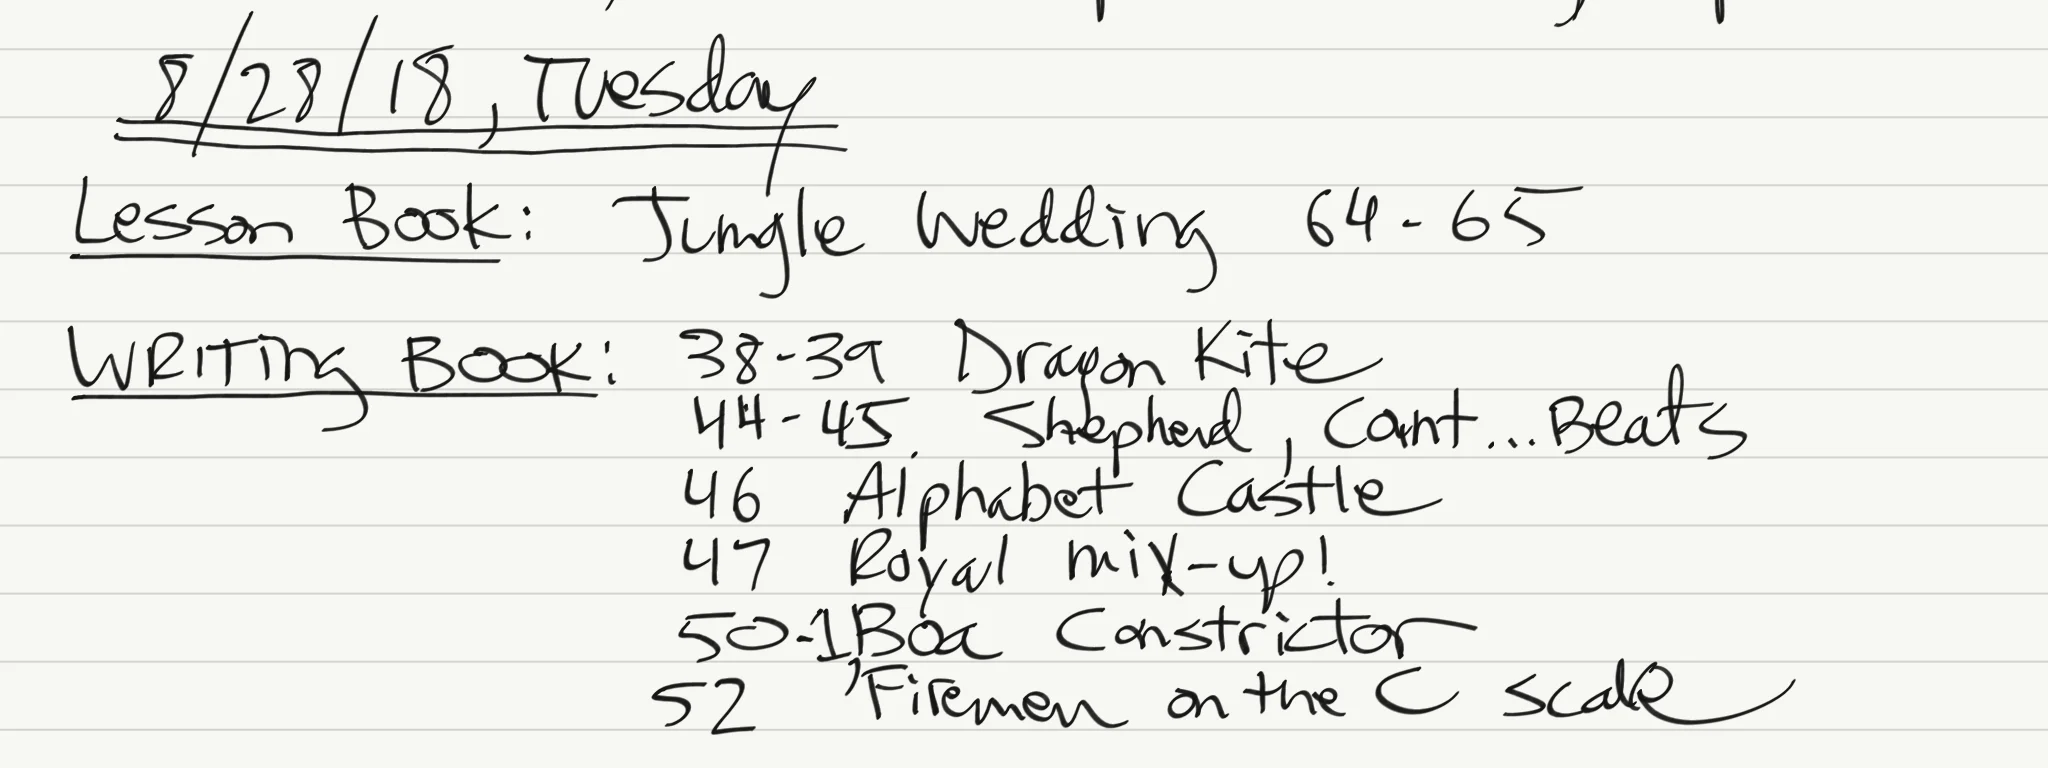 8/28/18, Tuesday
Lesson Book: Jungle Wedding 64-65
WRITing BOOK: 38-39 Dragon Kite
44-45. Shepherd, Count...Beats
46 Alphabet Castle
47 Royal mix-up!
50-1 Boa Constrictor
52 Firemen on the C scale